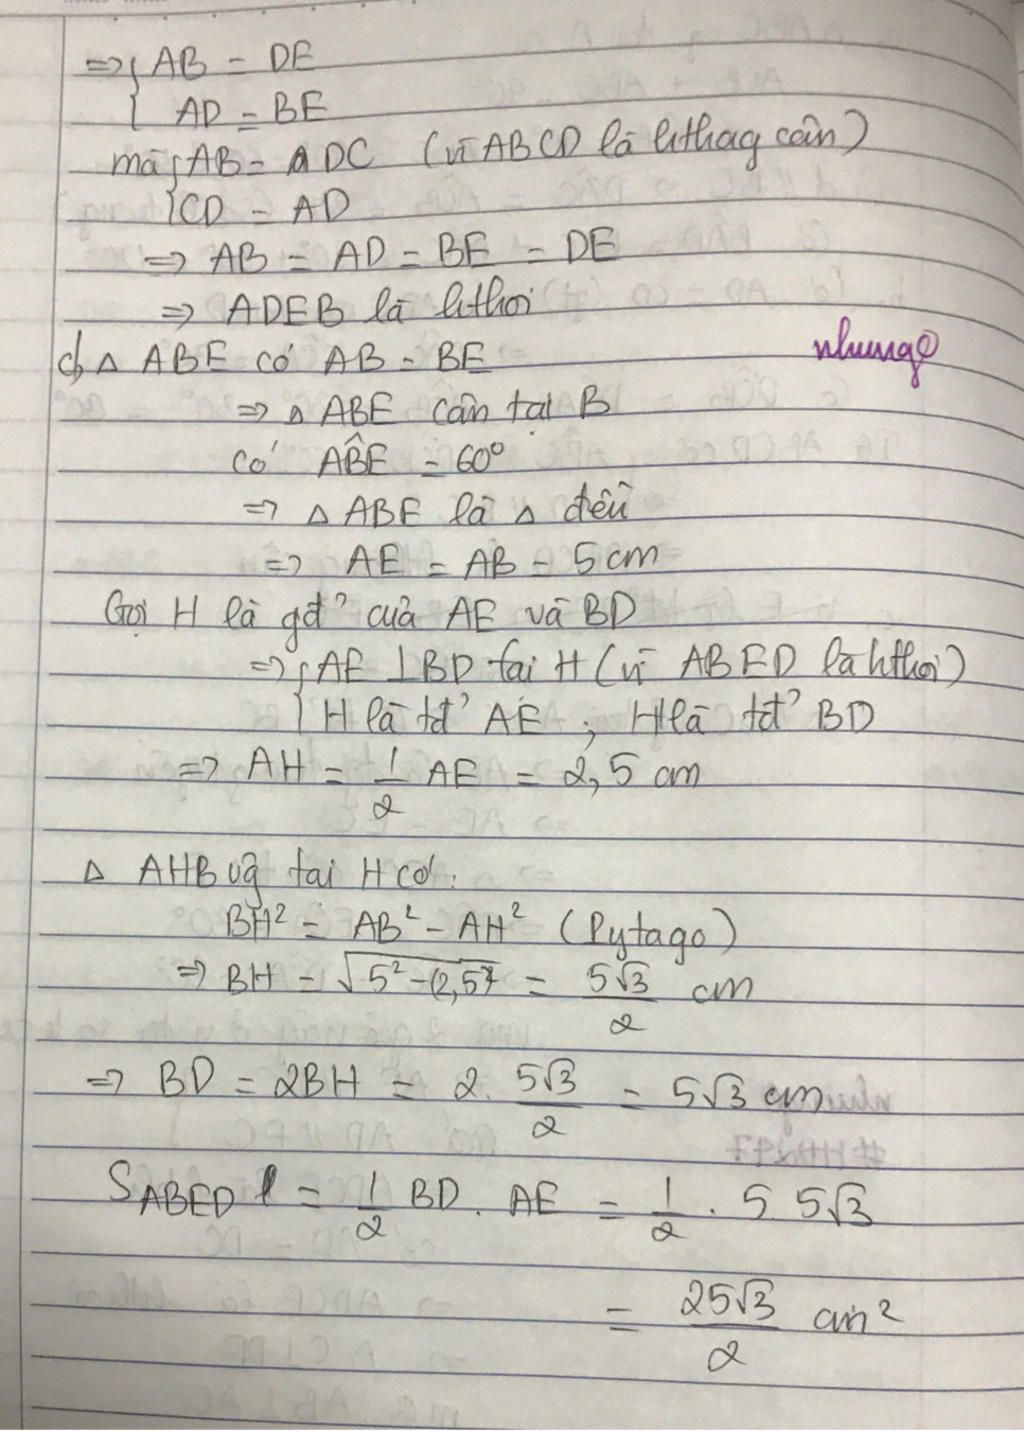 ⇒ { AB = DE
AD = BE
mà { AB = ADC (vì ABCD là hthag cân)
CD = AD
⇒ AB = AD = BE = DE
⇒ ADEB là hthoi
c, △ ABE có AB = BE
nhung@
⇒ △ ABE cân tại B
có ABE = 60°
⇒ △ ABE là △ đều
⇒ AE = AB = 5cm
Gọi H là gđ' của AE và BD
⇒ { AE ⊥ BD tại H (vì ABED là hthoi)
H là tđ' AE ; H là tđ' BD
⇒ AH = 1/2 AE = 2,5 cm
△ AHB vg tại H có:
BH² = AB² - AH² (Pytago)
⇒ BH = √5² - (2,5)² = 5√3/2 cm
⇒ BD = 2BH = 2. 5√3/2 = 5√3 cm
S ABED = 1/2 BD. AE = 1/2 . 5 5√3
= 25√3/2 cm²